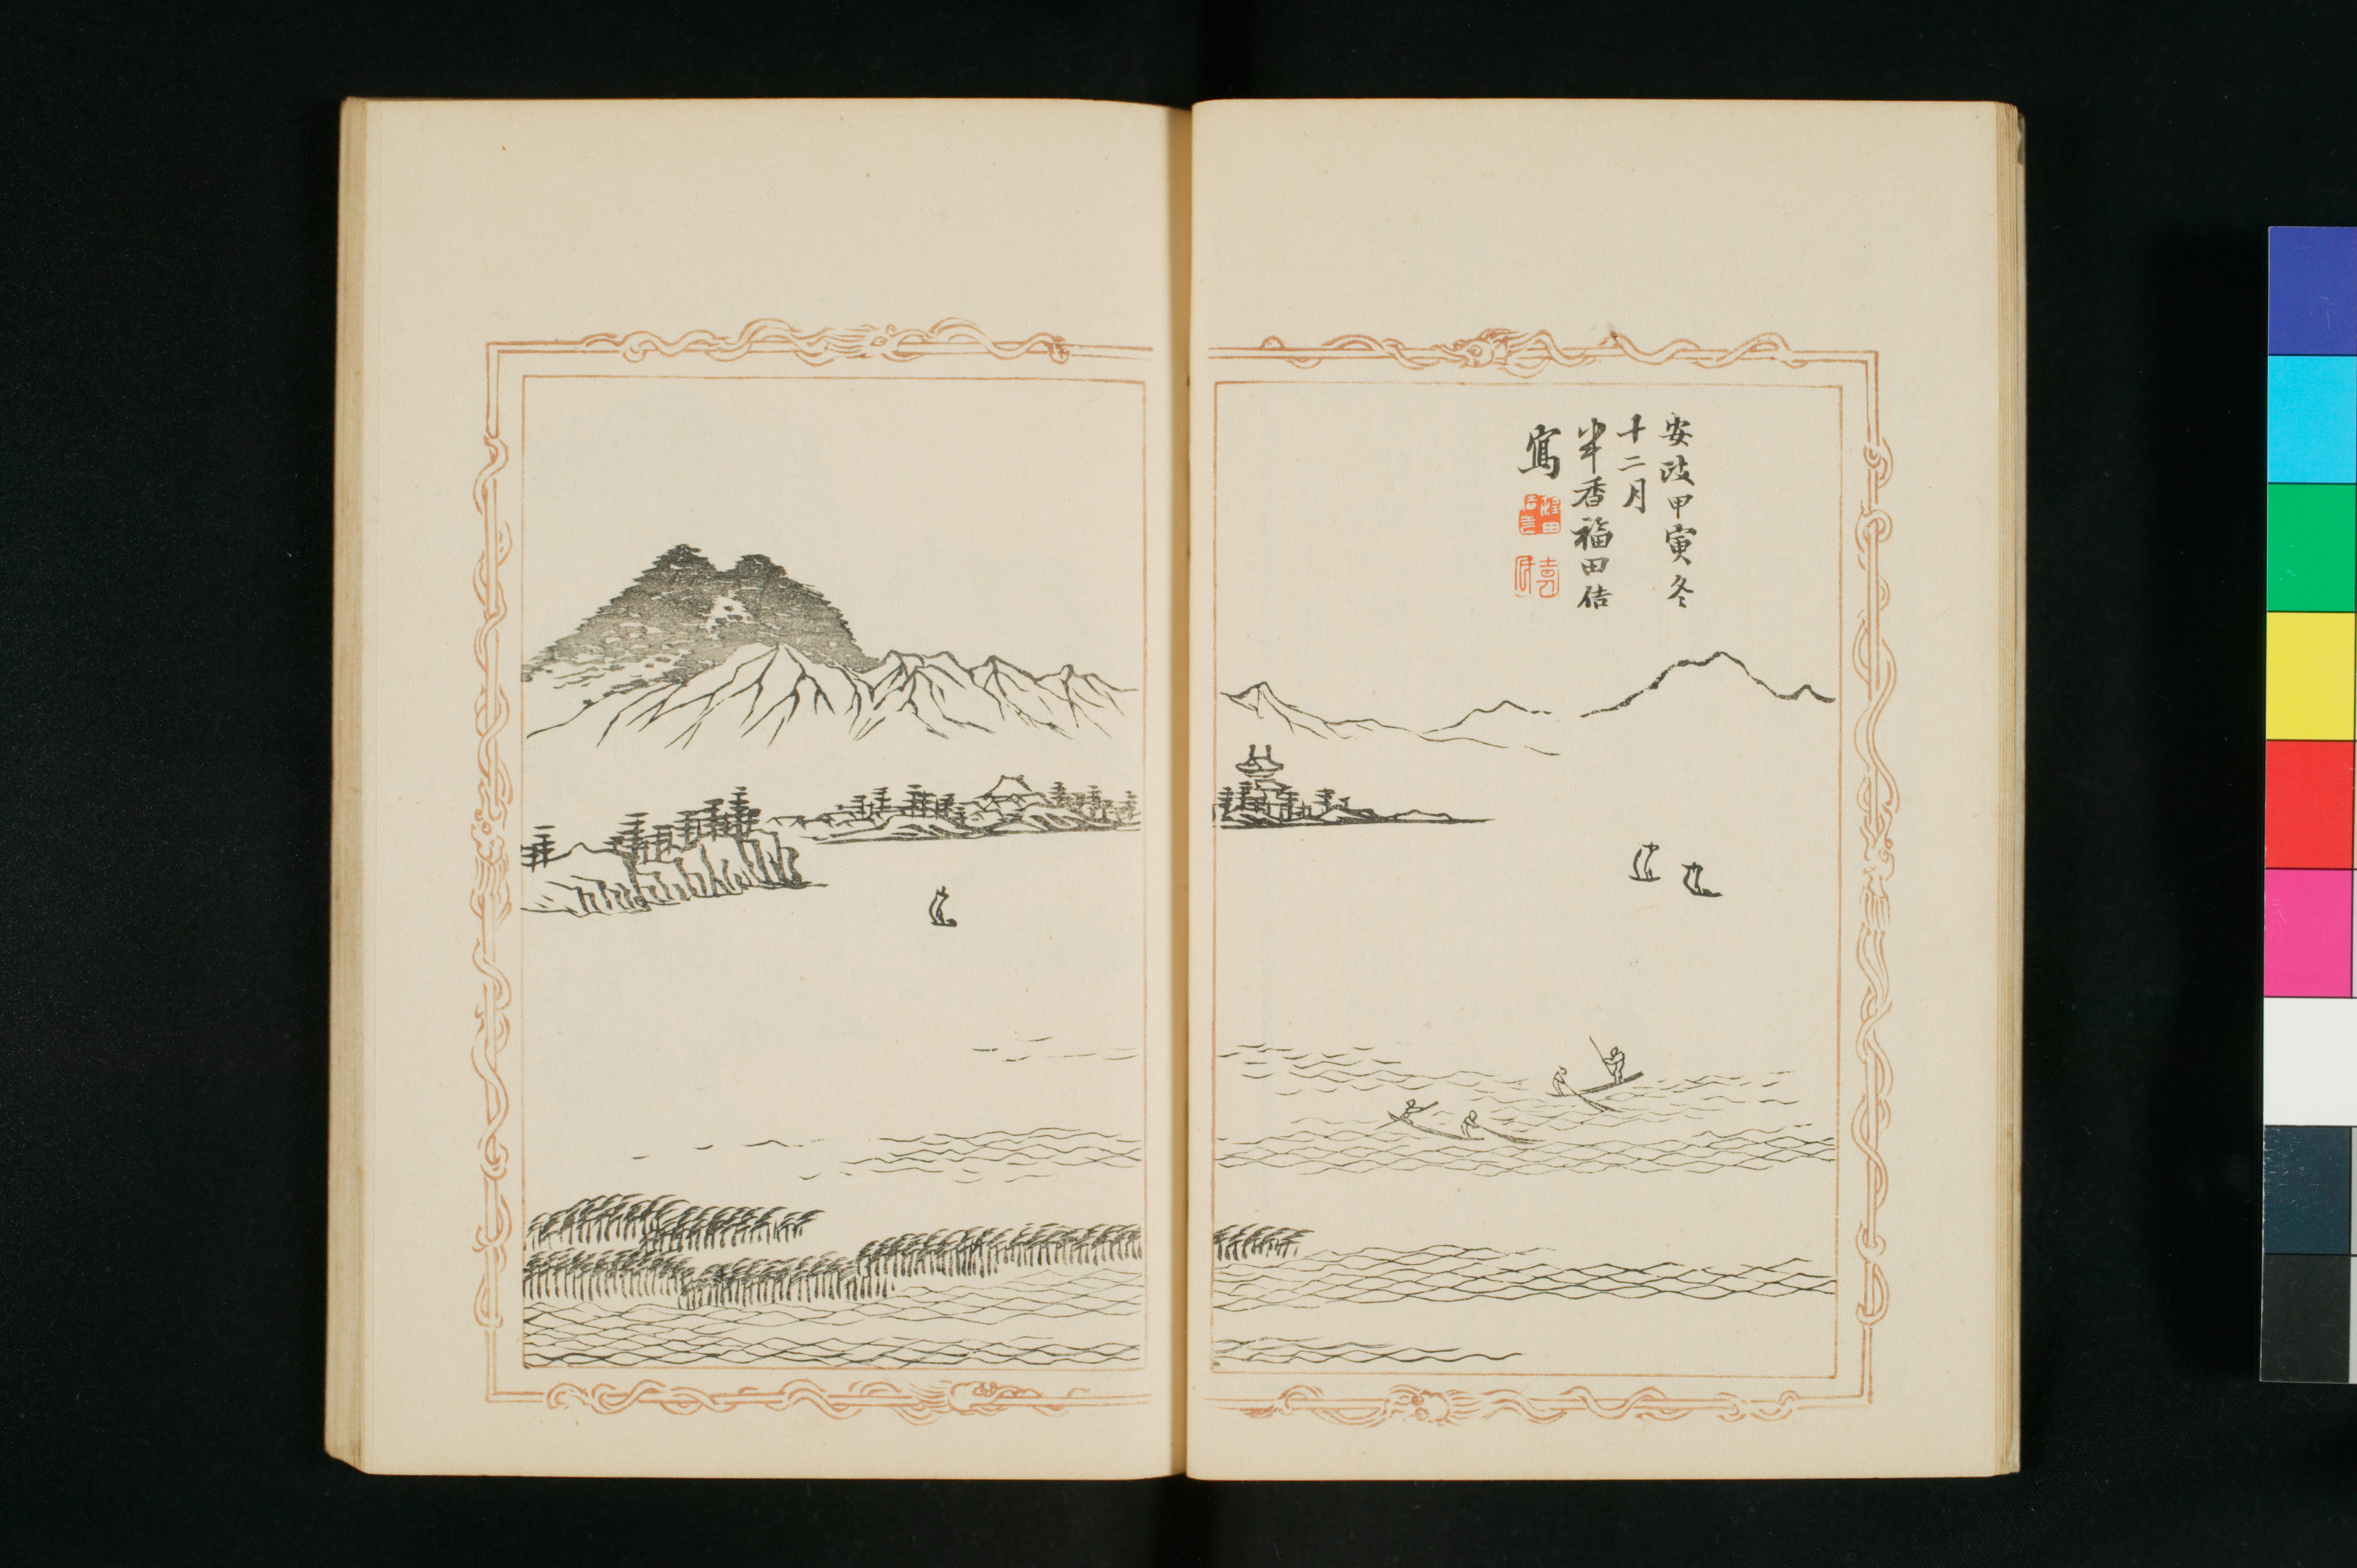 安政甲寅冬
十二月
半香福田佶
寫